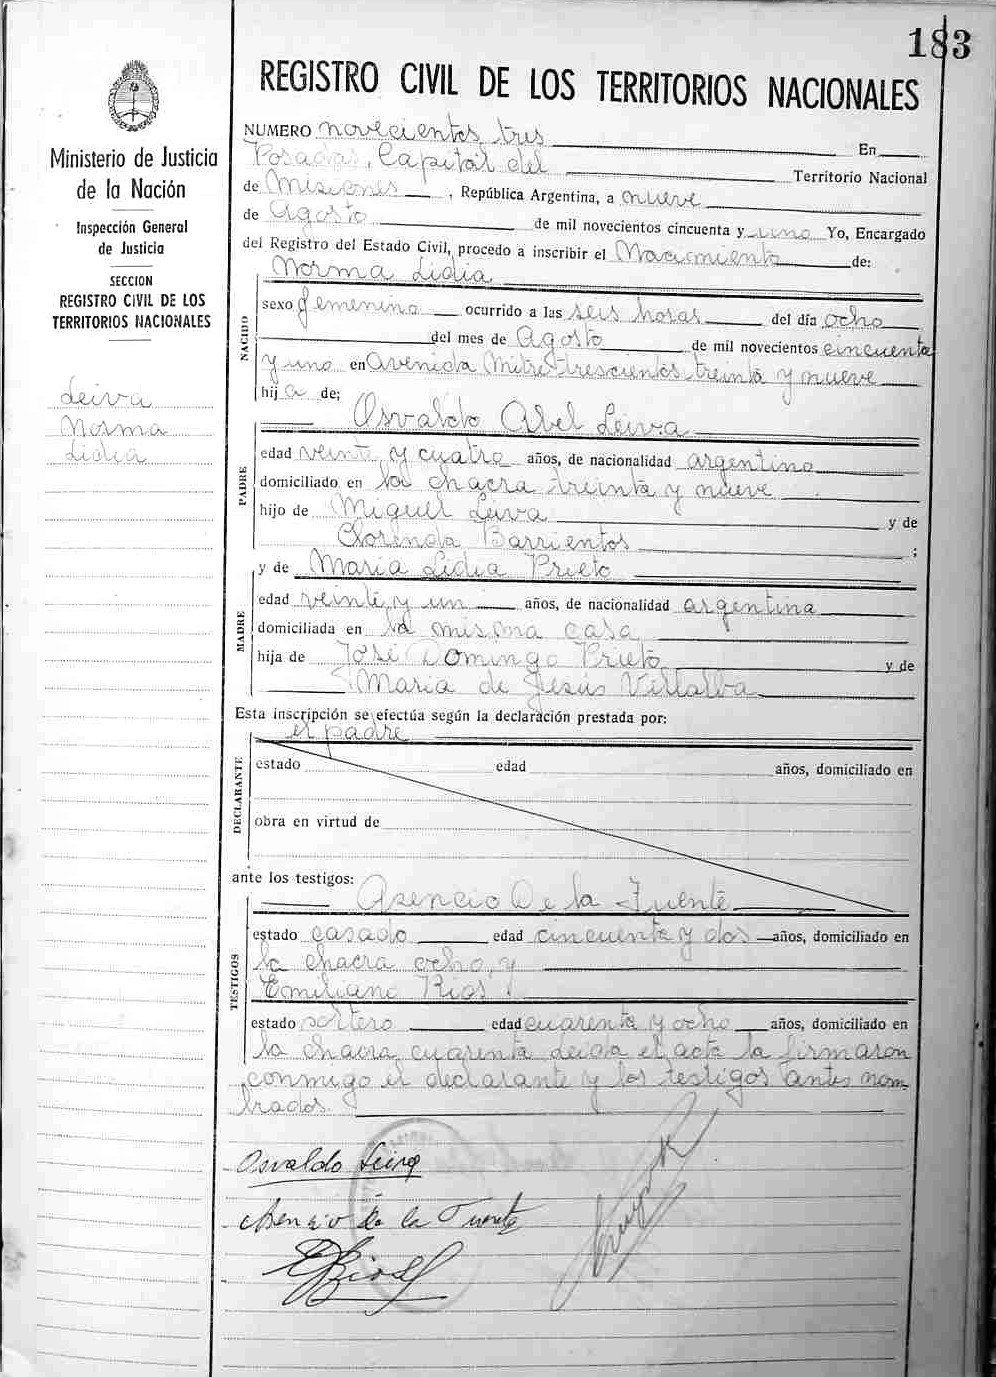 183
REGISTRO CIVIL DE LOS TERRITORIOS NACIONALES
Ministerio de Justicia
de la Nación
Inspección General
de Justicia
SECCION
REGISTRO CIVIL DE LOS
TERRITORIOS NACIONALES
Leiva
Norma
Lidia
NUMERO novecientos tres En
Posadas, Capital del Territorio Nacional
de Misiones, República Argentina, a nueve
de Agosto de mil novecientos cincuenta y uno Yo, Encargado
del Registro del Estado Civil, procedo a inscribir el Nacimiento de:
NACIDO
Norma Lidia
sexo femenino ocurrido a las seis horas del día ocho
del mes de Agosto de mil novecientos cincuenta
y uno en Avenida Mitre trescientos treinta y nueve
hija de;
PADRE
Osvaldo Abel Leiva
edad veinte y cuatro años, de nacionalidad argentino
domiciliado en la chacra treinta y nueve
hijo de Miguel Leiva y de
Clorinda Barrientos ;
y de Maria Lidia Prieto
MADRE
edad veinte y un años, de nacionalidad argentina
domiciliada en la misma casa
hija de José Domingo Prieto y de
Maria de Jesús Villalba
Esta inscripción se efectúa según la declaración prestada por:
el padre
DECLARANTE
estado edad años, domiciliado en
obra en virtud de
ante los testigos:
Asencio De la Fuente
TESTIGOS
estado casado edad cincuenta y dos años, domiciliado en
la chacra ocho, y
Emiliano Rios.
estado soltero edad cuarenta y ocho años, domiciliado en
la chacra cuarenta Leida el acta la firmaron
conmigo el declarante y los testigos antes nom
brados.
Osvaldo Leiva
Asencio De la Fuente
E Rios